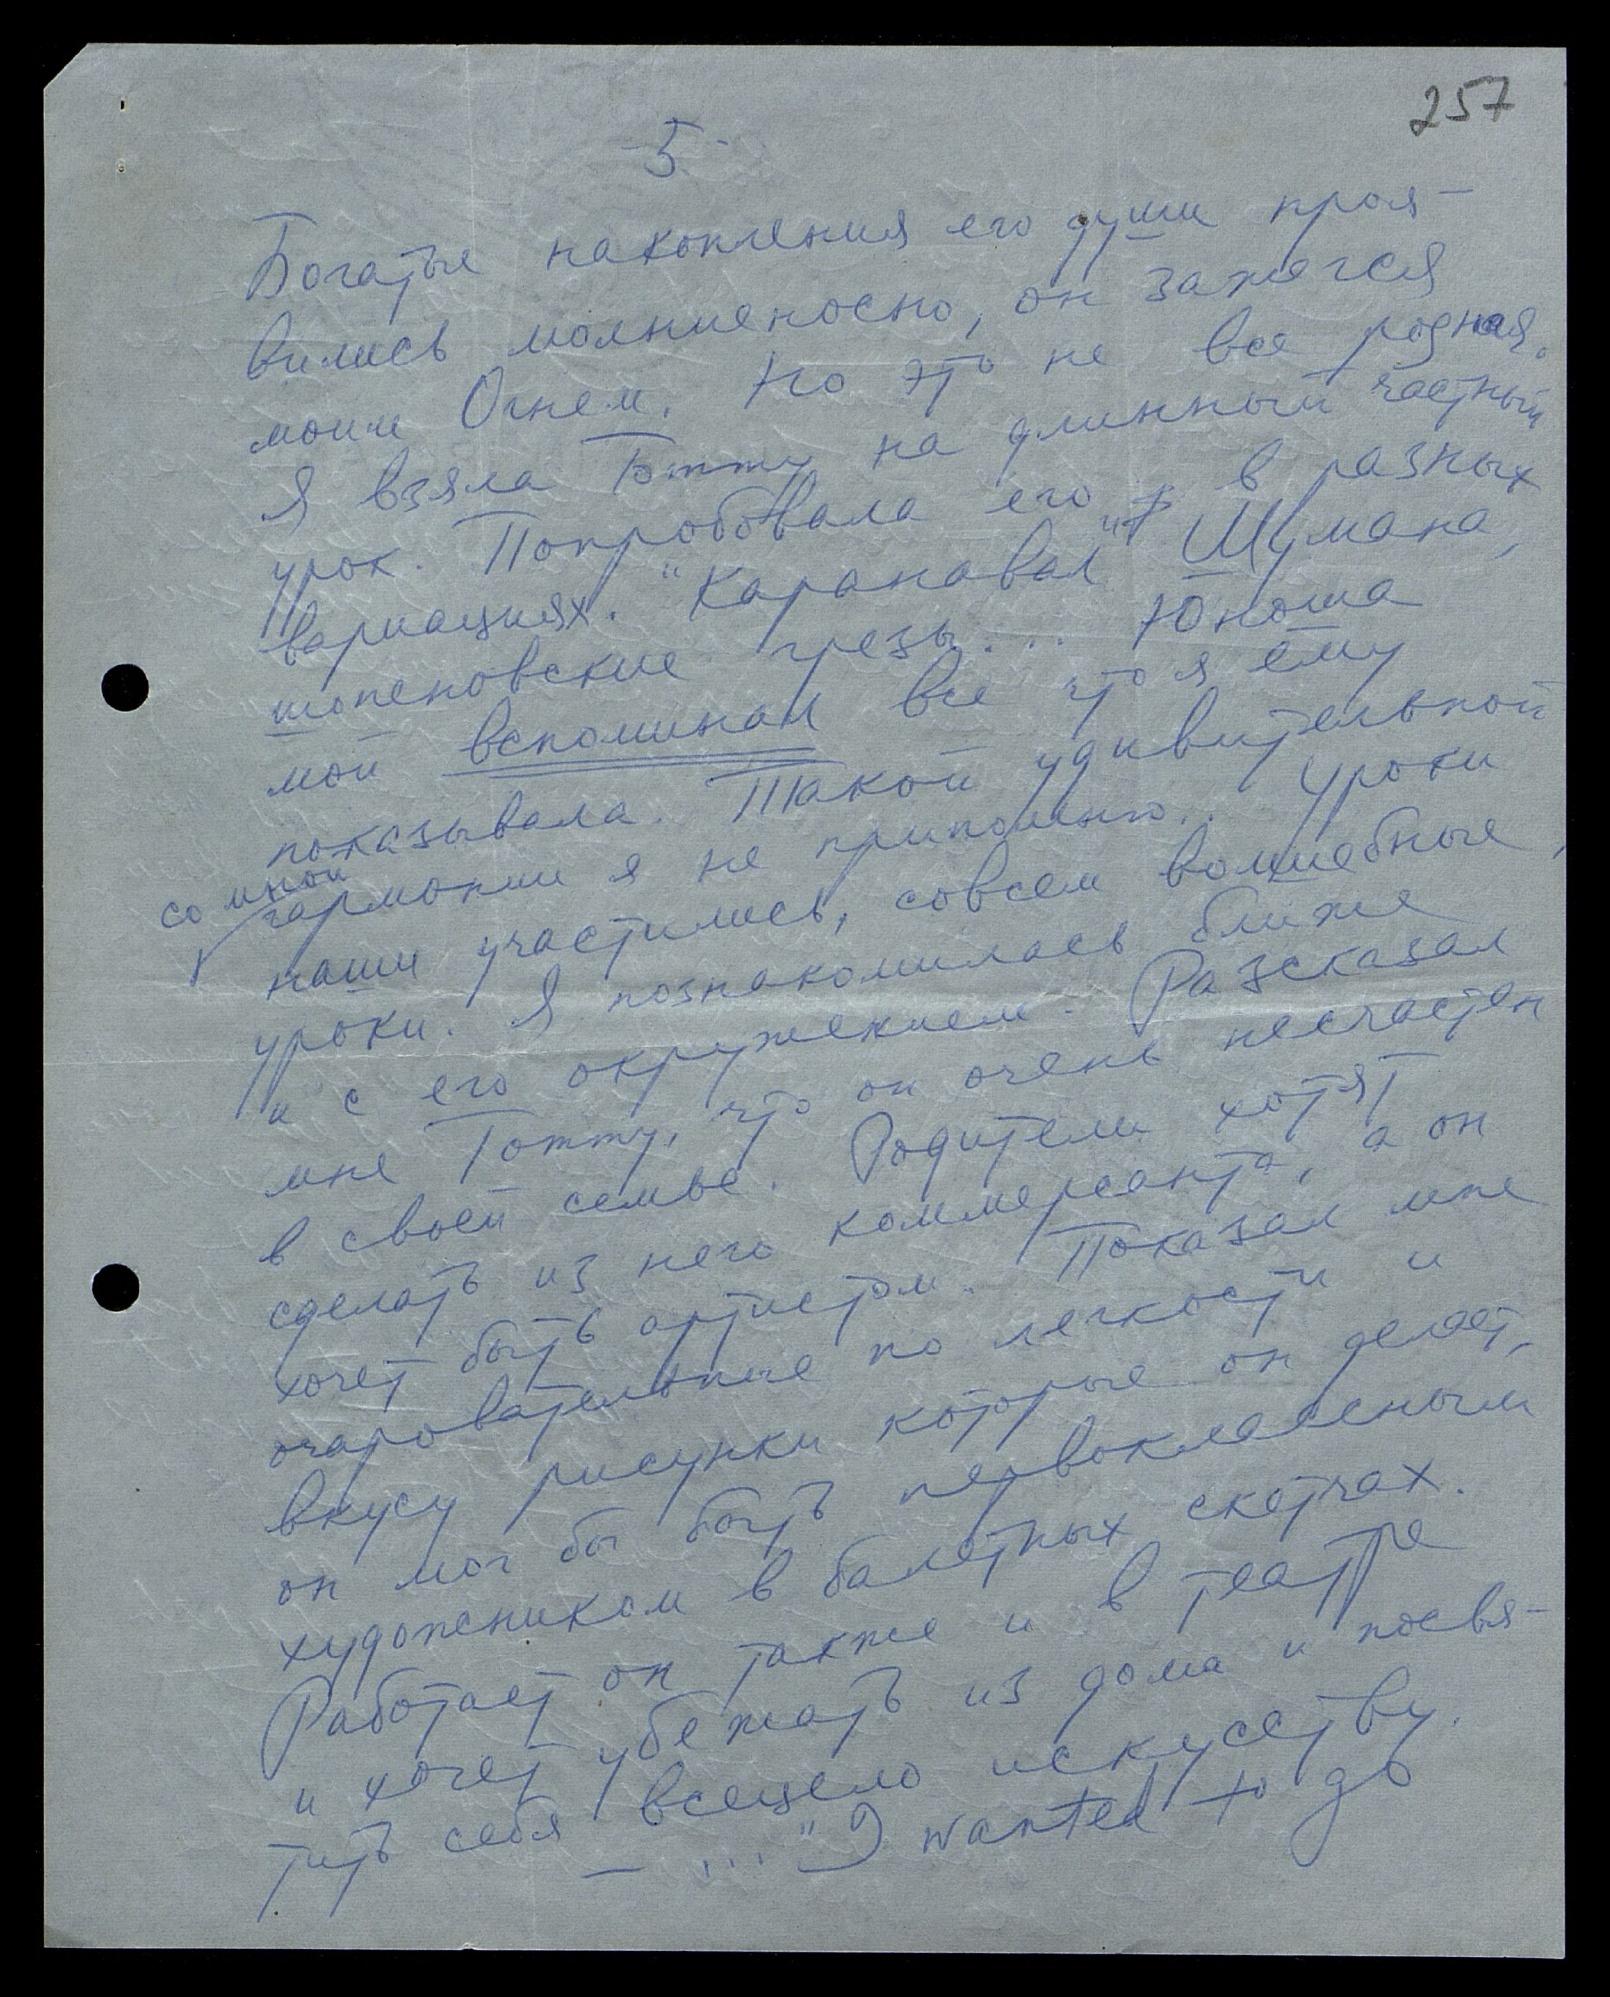 257
- 5 -
Богатые накопления его души проя-
вились молниеносно, он зажегся
моим Огнем. Но это не все родная.
Я взяла Томми на длинный частный
урок. Попробовала его в разных
вариациях. "Каранавал" Шумана,
шопеновские грезы... Юноша
мой вспоминал все что я ему
показывала. Такой удивительной
со мной
гармонии я не припомню.. Уроки
наши участились, совсем волшебные,
уроки. Я познакомилась ближе
и с его окружением. Разсказал
мне Томми, что он очень несчастен
в своей семье. Родители хотят
сделать из него коммерсанта, а он
хочет быть артистом. Показал мне
очаровательные по легкости и
вкусу рисунки которые он делает,
он мог бы быть первоклассным
художником в балетных скетчах.
Работает он также и в театре
и хочет убежать из дома и посвя-
тить себя всецело искусству.
— ... "I wanted to go